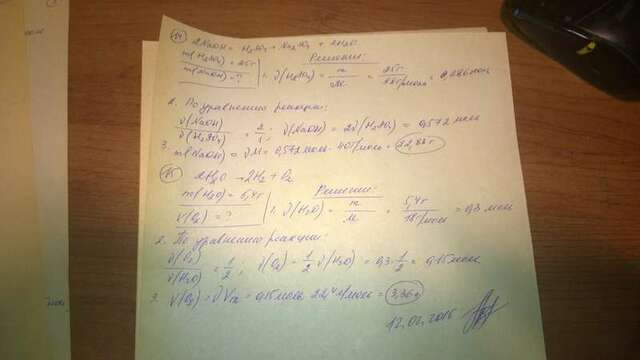 2NaOH + H₂SO₄ → Na₂SO₄ + 2H₂O
m(H₂SO₄) = Решение:
m(NaOH) = ? 1. ν(H₂SO₄) = m/M =
2. По уравнению реакции:
ν(NaOH)/ν(H₂SO₄) = 2/1; ν(NaOH) = 2ν(H₂SO₄) = 0,572 моль
3. m(NaOH) = νM = 0,572 моль · 40 г/моль = 22,88 г
2H₂O → 2H₂ + O₂
m(H₂O) = 5,4 г Решение:
V(O₂) = ? 1. ν(H₂O) = m/M = 5,4 г/18 г/моль = 0,3 моль
2. По уравнению реакции:
ν(O₂)/ν(H₂O) = 1/2; ν(O₂) = 1/2 ν(H₂O) = 0,3 · 1/2 = 0,15 моль
3. V(O₂) = ν Vm = 0,15 моль · 22,4 л/моль = 3,36 л